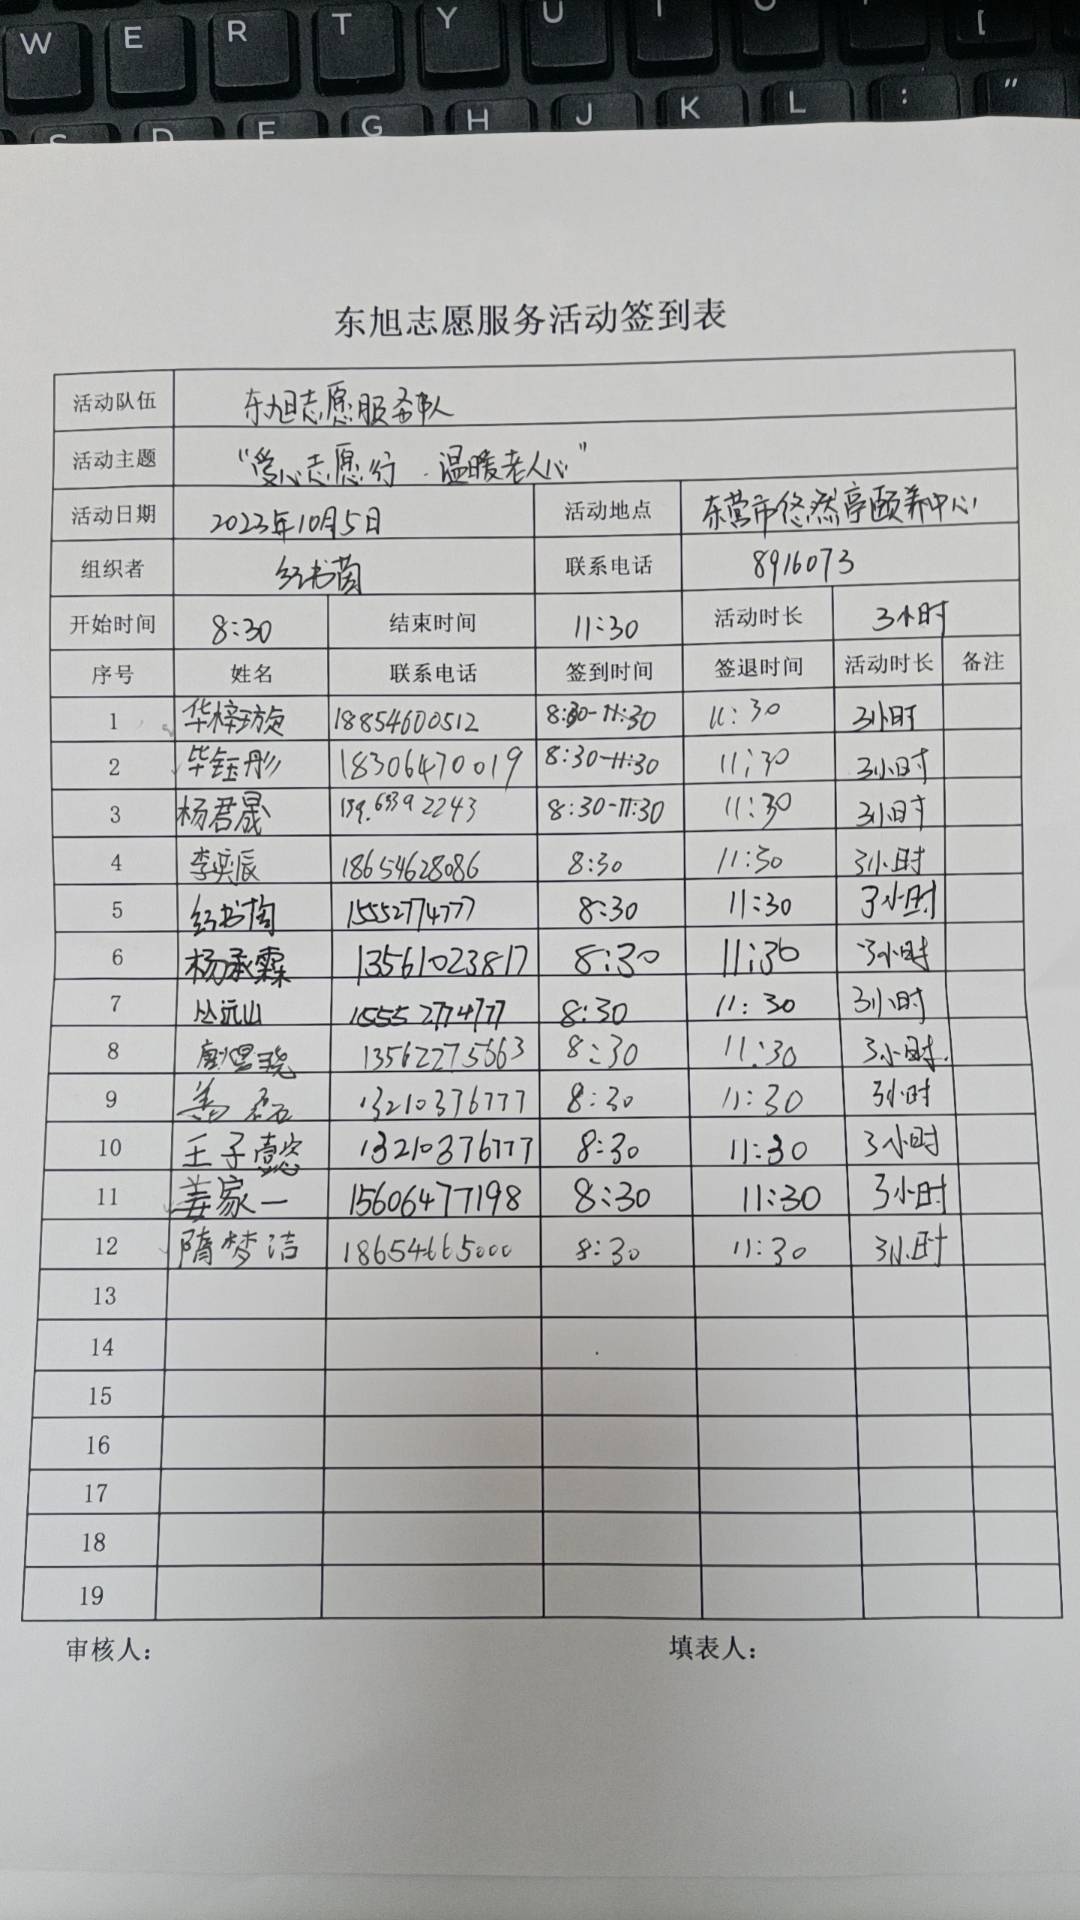 W E R T Y U I O [
S D F G H J K L : "
东旭志愿服务活动签到表
活动队伍 东旭志愿服务队
活动主题 “爱心志愿行·温暖老人心”
活动日期 2023年10月5日 活动地点 东营市悠然亭颐养中心
组织者 经书茵 联系电话 8916073
开始时间 8:30 结束时间 11:30 活动时长 3小时
序号 姓名 联系电话 签到时间 签退时间 活动时长 备注
1 华梓旗 18854600512 8:30-11:30 11:30 3小时
2 毕钰彤 18306470019 8:30-11:30 11:30 3小时
3 杨君晟 139.63392243 8:30-11:30 11:30 3小时
4 李奕辰 18654628086 8:30 11:30 3小时
5 15552774777 8:30 11:30 3小时
6 杨承霖 13561023817 8:30 11:30 3小时
7 丛远山 15552774777 8:30 11:30 3小时
8 13562275663 8:30 11:30 3小时.
9 13210376777 8:30 11:30 3小时
10 王子懿 13210376777 8:30 11:30 3小时
11 姜家一 15606477198 8:30 11:30 3小时
12 隋梦洁 18654665000 8:30 11:30 3小时
13
14
15
16
17
18
19
审核人： 填表人：